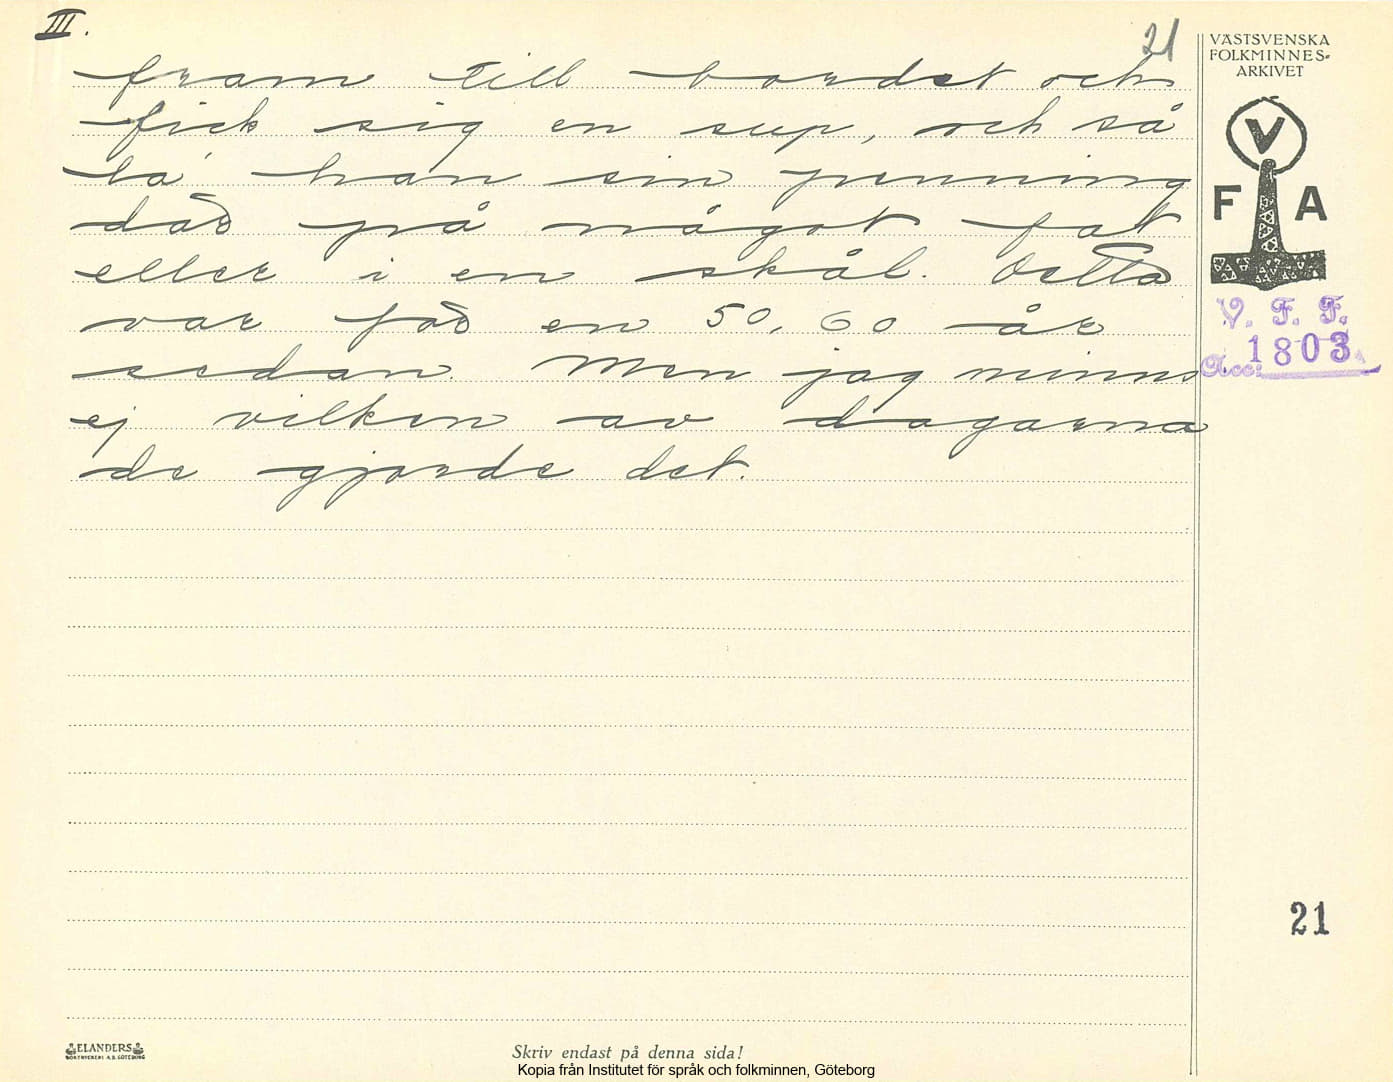 III.
21
fram till bordet och
fick sig en sup, och så
la' han sin penning
där på något fat
eller i en skål. Detta
var för en 50, 60 år
sedan. Men jag minns
ej vilken av dagarna
de gjorde det.
VÄSTSVENSKA
FOLKMINNES-
ARKIVET
V
F A
V. F. F.
Acc. 1803
21
ELANDERS
BOKTRYCKERI A.B. GÖTEBORG
Skriv endast på denna sida!
Kopia från Institutet för språk och folkminnen, Göteborg